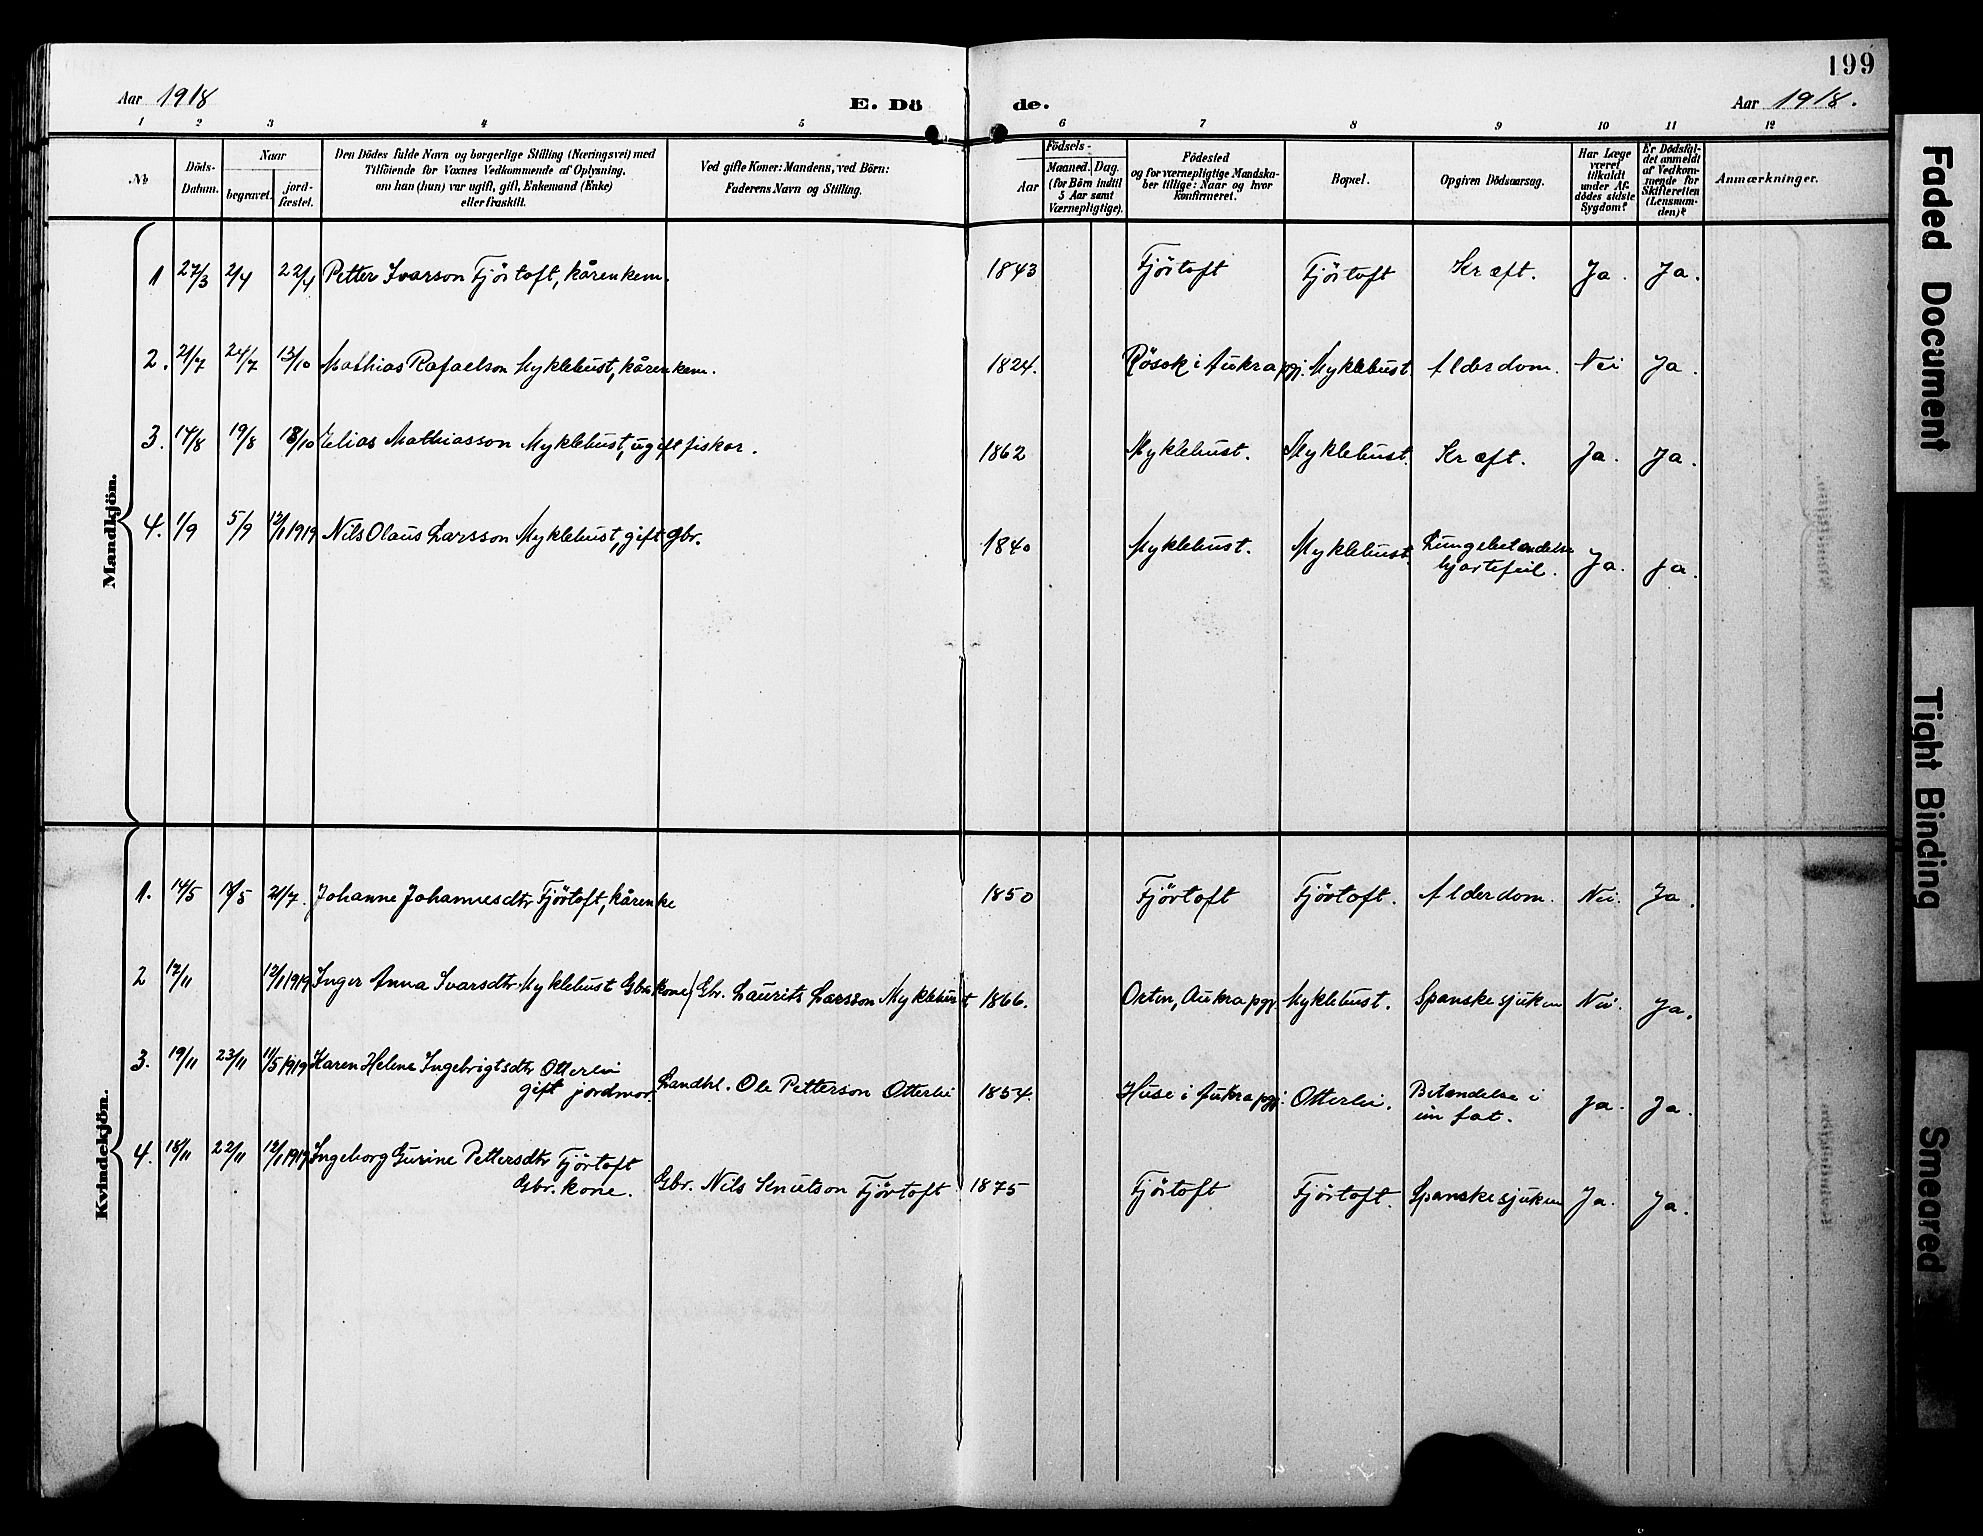 199
Aar 1918
E. Dö de.
Aar 1918.
1 2 3 4 5 6 7 8 9 10 11 12
No
Döds-
Datum.
Naar
begravet.
jord-
fæstet.
Den Dödes fulde Navn og borgerlige Stilling (Næringsvei) med
Tilföiende for Voxnes Vedkommende af Oplysning,
om han (hun) var ugift, gift, Enkemand (Enke)
eller fraskilt.
Ved gifte Koner: Mandens, ved Börn:
Faderens Navn og Stilling.
Födsels-
Aar
Maaned. Dag.
(for Börn indtil
5 Aar samt
Værnepligtige).
Födested
og for værnepligtige Mandska-
ber tillige: Naar og hvor
konfirmeret.
Bopæl.
Opgiven Dödsaarsag.
Har Læge
været
tilkaldt
under Af-
dödes sidste
Sygdom?
Er Dödsfal-
det anmeldt
af Vedkom-
mende for
Skifteretten
(Lensman-
den)?
Anmærkninger.
Mandkjön.
1 27/3 2/4 22/4 Petter Ivarson Fjörtoft, kårenkem. 1843 Fjörtoft Fjörtoft Kræft. Ja. Ja.
2. 21/7 24/7 13/10 Mathias Rafaelson Myklebust, kårenkem. 1824. Rösok i Aukra pgj. Myklebust. Alderdom. Nei Ja.
3. 14/8 19/8 13/10 Elias Mathiasson Myklebust, ugift fiskar. 1862 Myklebust. Myklebust. Kræft. Ja. Ja.
4. 1/9 5/9 12/1 1919 Nils Olaus Larsson Myklebust, gift gbr. 1840 Myklebust. Myklebust. Lungebetændelse
hjartefeil. Ja. Ja.
Kvindekjön.
1. 14/5 18/5 21/7. Johanne Johannesdtr Fjörtoft, kårenke 1850 Fjörtoft Fjörtoft. Alderdom. Nei. Ja.
2 17/11 12/1 1919 Inger Anna Ivarsdtr. Myklebust Gbr. kone Gbr. Laurits Larsson Myklebust 1866. Orten, Aukra pgj. Myklebust. Spanskesjuken Nei. Ja.
3. 19/11 23/11 11/5 1919 Karen Helene Ingebrigtsdtr Otterlei
gift jordmor. Landhl. Ole Petterson Otterlei 1854. Huse i Aukra pgj. Otterlei. Betændelse i
ein fot. Ja. Ja.
4. 18/11 22/11 12/1 1919 Ingeborg Gurine Pettersdtr Fjörtoft
Gbr. kone. Gbr. Nils Knutson Fjörtoft 1875 Fjörtoft Fjörtoft. Spanskesjuken Ja. Ja.
Faded Document
Tight Binding
Smeared